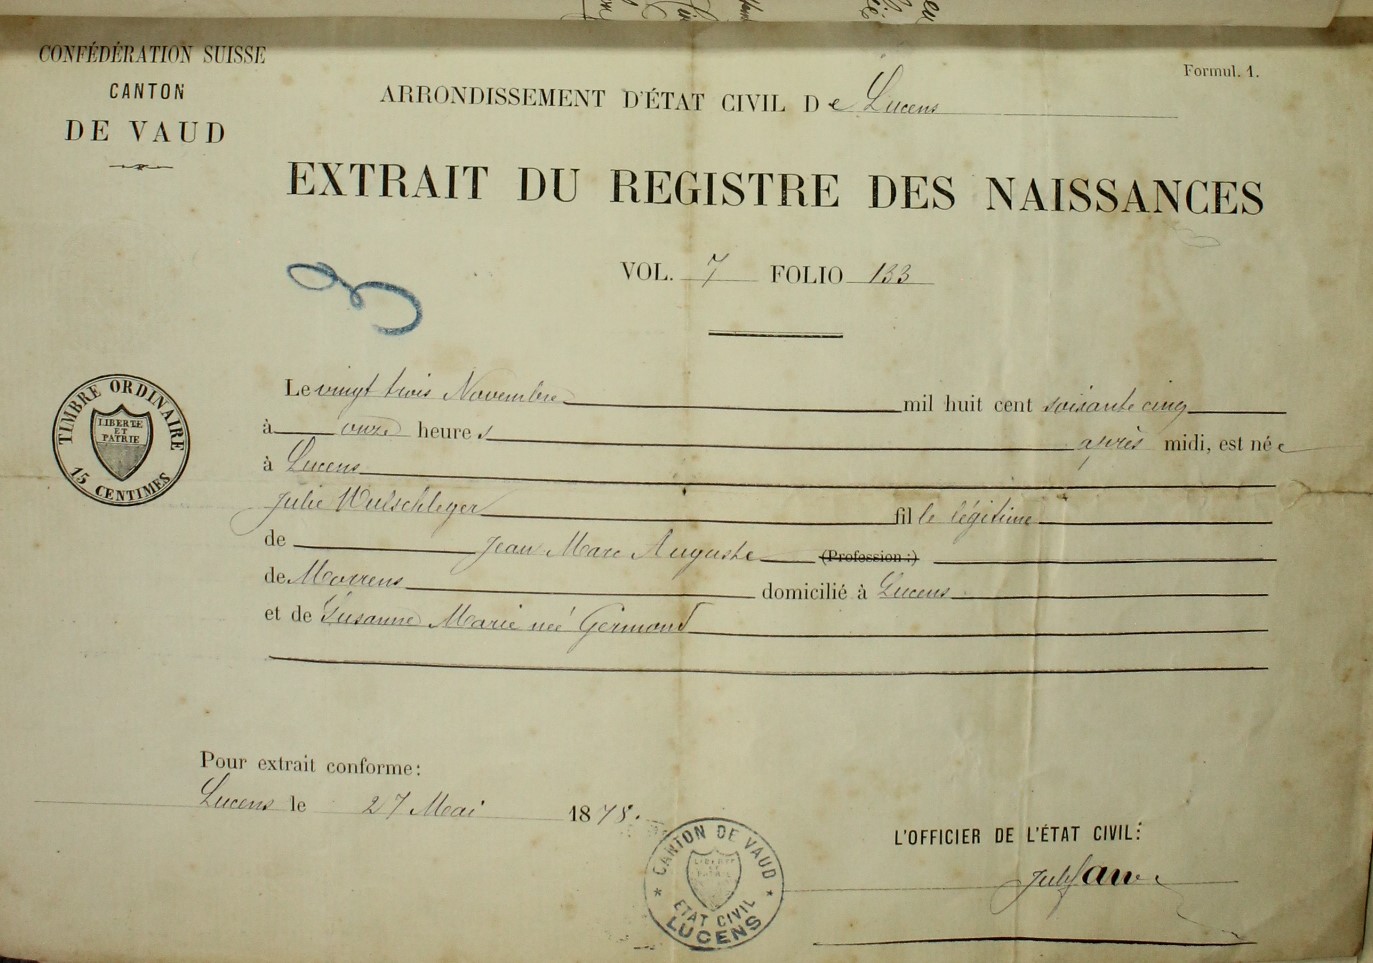 CONFÉDÉRATION SUISSE
CANTON
DE VAUD
Formul. 1.
ARRONDISSEMENT D'ÉTAT CIVIL De Lucens
EXTRAIT DU REGISTRE DES NAISSANCES
VOL. 7 FOLIO 133
3
TIMBRE ORDINAIRE
LIBERTE
ET
PATRIE
15 CENTIMES
Le vingt trois Novembre mil huit cent soixante cinq
à onze heures après midi, est née
à Lucens
Julie Wulschleger fille légitime
de Jean Marc Auguste (Profession:)
de Morrens domicilié à Lucens
et de Susanne Marie née Germond
Pour extrait conforme:
Lucens le 27 Mai 1878.
CANTON DE VAUD
LIBERTE
ET
PATRIE
ETAT CIVIL
LUCENS
L'OFFICIER DE L'ÉTAT CIVIL: